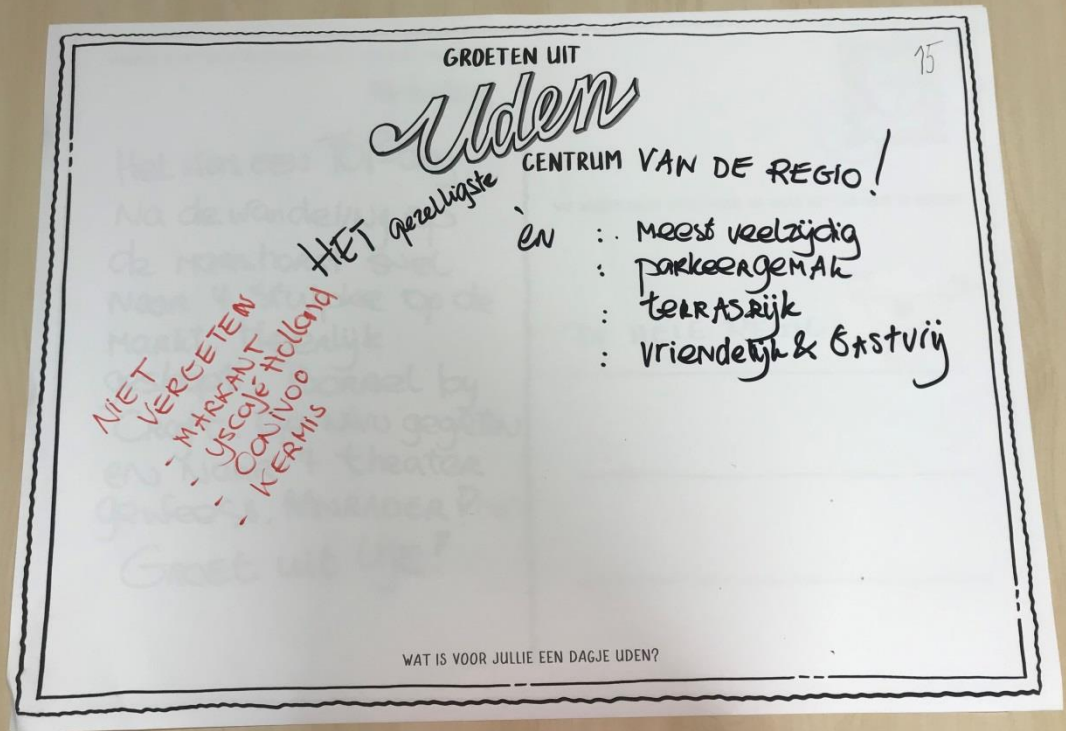 GROETEN UIT
15
Uden
HET gezelligste CENTRUM VAN DE REGIO!
èn : meest veelzijdig
: parkeergemak
: terrasrijk
: vriendelijk & Gastvrij
NIET
VERGETEN
- MARKANT
- yscafé Holland
- OONIVOO
- KERMIS
WAT IS VOOR JULLIE EEN DAGJE UDEN?